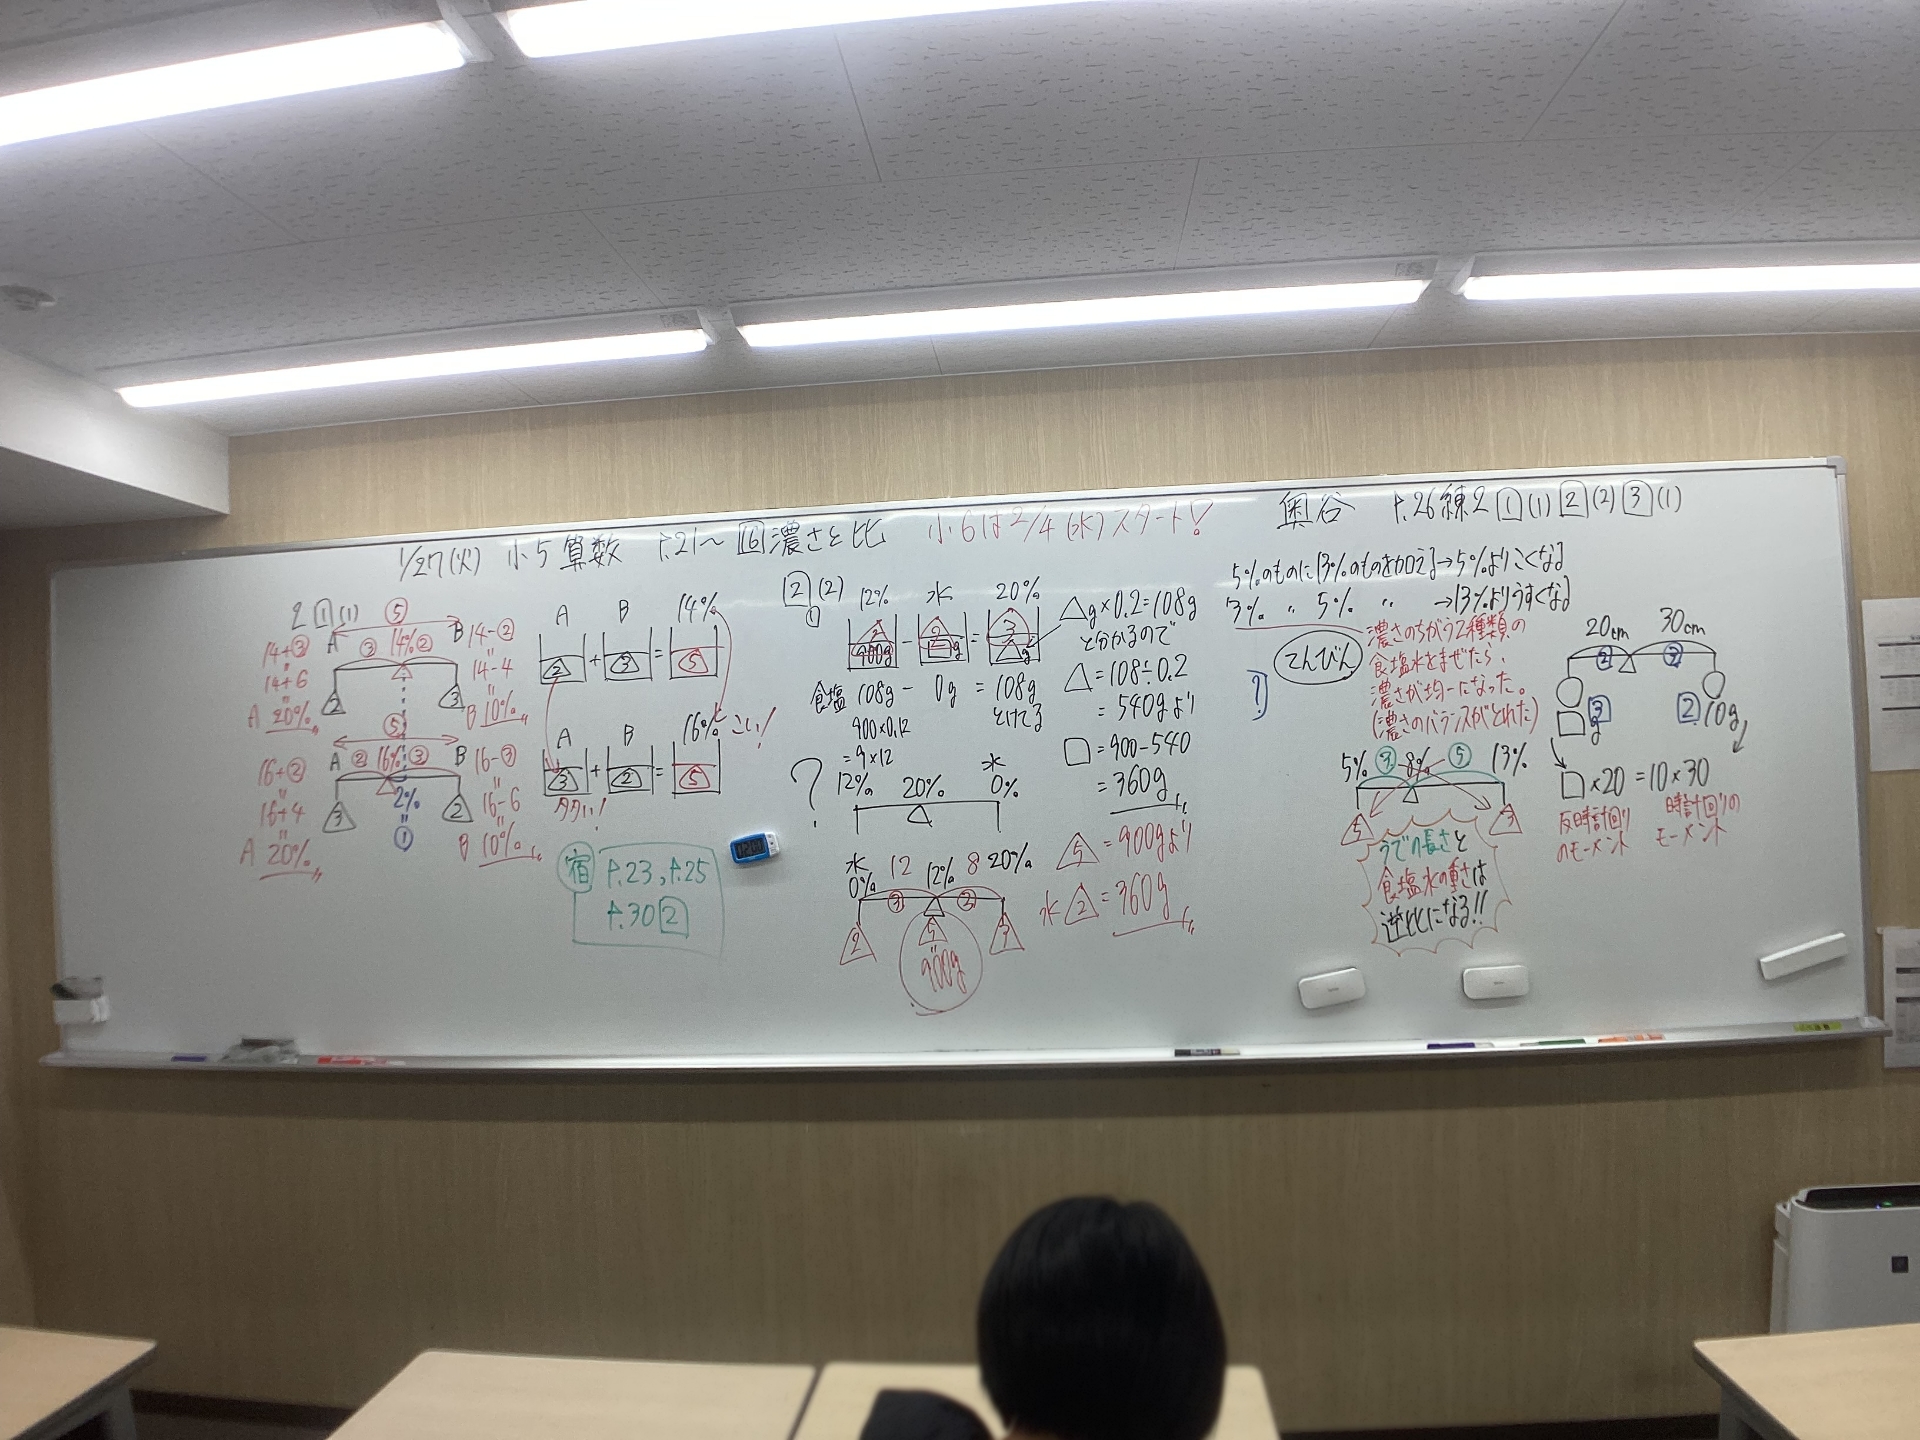 1/27(火) 小5算数 P.21～ 16 濃さと比
小6は2/4(水)スタート！
奥谷 P.26練2 1(1) 2(2) 3(1)
2 1(1)
⑤
A ③ 14% ② B
14+③
14+6
A 20%
14-②
14-4
B 10%
2 3
⑤
A ② 16% ③ B
16+②
16+4
A 20%
16-③
16-6
B 10%
3 2
2%
①
A B 14%
2 + 3 = 5
A B 16% こい！
3 + 2 = 5
宿 P.23, P.25
P.30 2
2 (2)
①
12% 水 20%
900g - □g = △g
食塩 108g - 0g = 108g
とけてる
900×0.12
=9×12
△g×0.2=108g
と分かるので
△=108÷0.2
=540gより
□=900-540
=360g
?
12% 20% 水 0%
水 0% 12 12% 8 20%
③ ②
2 5
900g
△5=900gより
水△2=360g
5%のものに13%のものを加える→5%よりこくなる
13% 〃 5% 〃 →13%よりうすくなる
てんびん
濃さのちがう2種類の
食塩水をまぜたら、
濃さが均一になった。
(濃さのバランスがとれた)
5% ③ 8% ⑤ 13%
5 3
うでの長さと
食塩水の重さは
逆比になる!!
20cm 30cm
② ③
□g 3 2 10g
□×20=10×30
反時計回り
のモーメント
時計回りの
モーメント